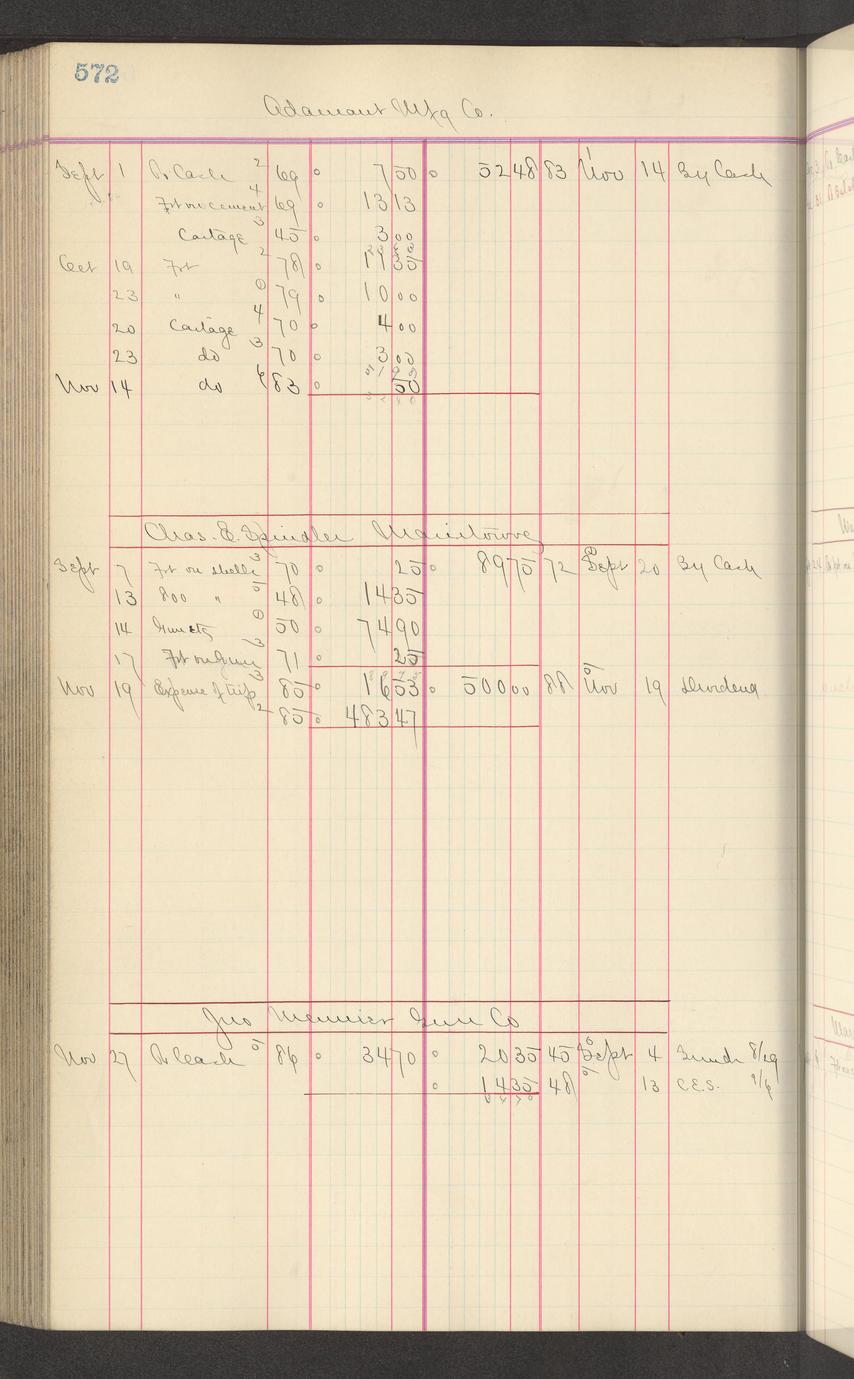 572
Adamant Mfg Co.
Sept 1 To Cash 2 69 7 50 52 48 83 Nov 14 By Cash
Frt on cement 4 69 13 13
Cartage 3 45 3 00
Oct 19 Frt 2 78 11 35
23 " 79 10 00
20 Cartage 4 70 4 00
23 do 3 70 3 00
Nov 14 do 83 50
Chas. E. Spindler Manitowoc
Sept 7 Frt on shells 3 70 25 89 75 72 Sept 20 By Cash
13 800 " 5 48 14 35
14 50 74 90
17 Frt on Guns 3 71 25
Nov 19 Expense of trip 3 85 16 53 500 00 88 Nov 19 Dividend
2 85 483 47
Jno Meunier Gun Co
Nov 27 To Cash 5 86 34 70 20 35 45 Sept 4 8/29
14 35 48 13 C.E.S. 9/8